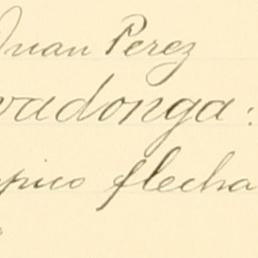 Juan Perez
vadonga:
pico flecha